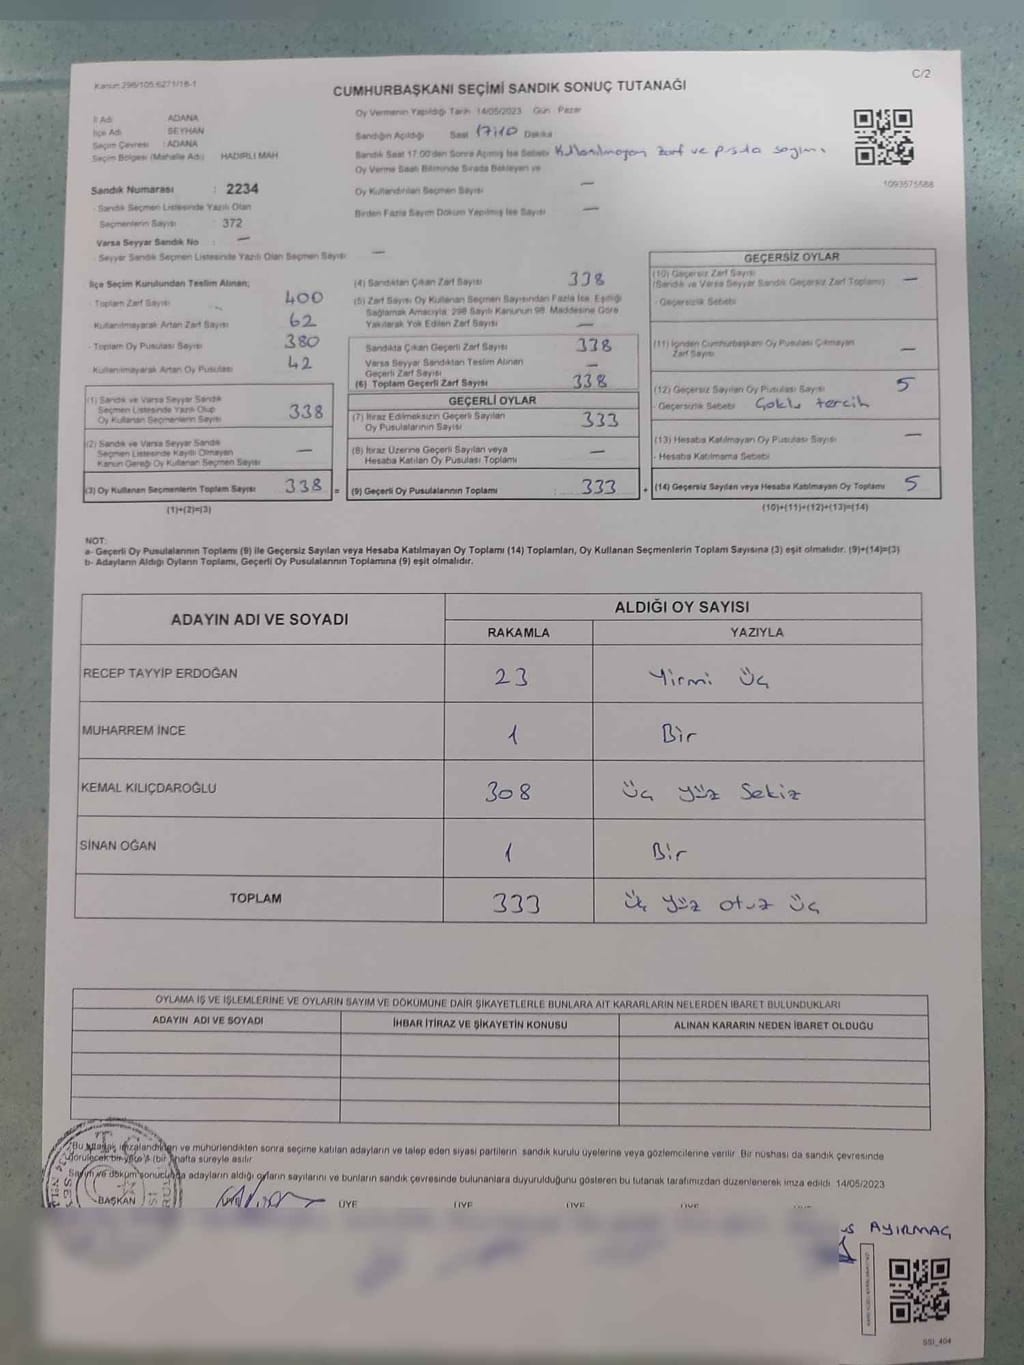 Kanun:298/105.6271/16-1
C/2
CUMHURBAŞKANI SEÇİMİ SANDIK SONUÇ TUTANAĞI
İl Adı ADANA
İlçe Adı SEYHAN
Seçim Çevresi : ADANA
Seçim Bölgesi (Mahalle Adı) HADIRLI MAH
Sandık Numarası : 2234
- Sandık Seçmen Listesinde Yazılı Olan
Seçmenlerin Sayısı : 372
Varsa Seyyar Sandık No : —
- Seyyar Sandık Seçmen Listesinde Yazılı Olan Seçmen Sayısı —
Oy Vermenin Yapıldığı Tarih 14/05/2023 Gün : Pazar
Sandığın Açıldığı Saat 17:10 Dakika
Sandık Saat 17:00'den Sonra Açılmış İse Sebebi Kullanılmayan zarf ve pusula sayımı
Oy Verme Saati Bitiminde Sırada Bekleyen ve
Oy Kullandırılan Seçmen Sayısı —
Birden Fazla Sayım Döküm Yapılmış İse Sayısı —
1093575588
İlçe Seçim Kurulundan Teslim Alınan;
- Toplam Zarf Sayısı 400
Kullanılmayarak Artan Zarf Sayısı 62
- Toplam Oy Pusulası Sayısı 380
Kullanılmayarak Artan Oy Pusulası 42
(1) Sandık ve Varsa Seyyar Sandık
Seçmen Listesinde Yazılı Olup
Oy Kullanan Seçmenlerin Sayısı 338
(2) Sandık ve Varsa Seyyar Sandık
Seçmen Listesinde Kayıtlı Olmayan
Kanun Gereği Oy Kullanan Seçmen Sayısı —
(3) Oy Kullanan Seçmenlerin Toplam Sayısı 338 =
(1)+(2)=(3)
(4) Sandıktan Çıkan Zarf Sayısı 338
(5) Zarf Sayısı Oy Kullanan Seçmen Sayısından Fazla İse, Eşitliği
Sağlamak Amacıyla; 298 Sayılı Kanunun 98. Maddesine Göre
Yakılarak Yok Edilen Zarf Sayısı —
Sandıkta Çıkan Geçerli Zarf Sayısı 338
Varsa Seyyar Sandıktan Teslim Alınan
Geçerli Zarf Sayısı —
(6) Toplam Geçerli Zarf Sayısı 338
GEÇERLİ OYLAR
(7) İtiraz Edilmeksizin Geçerli Sayılan
Oy Pusulalarının Sayısı 333
(8) İtiraz Üzerine Geçerli Sayılan veya
Hesaba Katılan Oy Pusulası Toplamı —
(9) Geçerli Oy Pusulalarının Toplamı : 333 +
GEÇERSİZ OYLAR
(10) Geçersiz Zarf Sayısı
(Sandık ve Varsa Seyyar Sandık Geçersiz Zarf Toplamı) —
- Geçersizlik Sebebi
(11) İçinden Cumhurbaşkanı Oy Pusulası Çıkmayan
Zarf Sayısı —
(12) Geçersiz Sayılan Oy Pusulası Sayısı 5
- Geçersizlik Sebebi Çoklu tercih
(13) Hesaba Katılmayan Oy Pusulası Sayısı —
- Hesaba Katılmama Sebebi
(14) Geçersiz Sayılan veya Hesaba Katılmayan Oy Toplamı 5
(10)+(11)+(12)+(13)=(14)
NOT:
a- Geçerli Oy Pusulalarının Toplamı (9) ile Geçersiz Sayılan veya Hesaba Katılmayan Oy Toplamı (14) Toplamları, Oy Kullanan Seçmenlerin Toplam Sayısına (3) eşit olmalıdır. (9)+(14)=(3)
b- Adayların Aldığı Oyların Toplamı, Geçerli Oy Pusulalarının Toplamına (9) eşit olmalıdır.
ADAYIN ADI VE SOYADI
ALDIĞI OY SAYISI
RAKAMLA YAZIYLA
RECEP TAYYİP ERDOĞAN 23 Yirmi Üç
MUHARREM İNCE 1 Bir
KEMAL KILIÇDAROĞLU 308 Üç yüz Sekiz
SİNAN OĞAN 1 Bir
TOPLAM 333 Üç yüz otuz Üç
OYLAMA İŞ VE İŞLEMLERİNE VE OYLARIN SAYIM VE DÖKÜMÜNE DAİR ŞİKAYETLERLE BUNLARA AİT KARARLARIN NELERDEN İBARET BULUNDUKLARI
ADAYIN ADI VE SOYADI İHBAR İTİRAZ VE ŞİKAYETİN KONUSU ALINAN KARARIN NEDEN İBARET OLDUĞU
Bu tutanak imzalandıktan ve mühürlendikten sonra seçime katılan adayların ve talep eden siyasi partilerin sandık kurulu üyelerine veya gözlemcilerine verilir. Bir nüshası da sandık çevresinde
görülecek bir yere 1 (bir) hafta süreyle asılır.
Sayım ve döküm sonucunda adayların aldığı oyların sayılarını ve bunların sandık çevresinde bulunanlara duyurulduğunu gösteren bu tutanak tarafımızdan düzenlenerek imza edildi. 14/05/2023
BAŞKAN ÜYE ÜYE ÜYE ÜYE
AYIRMAÇ
SSI_404